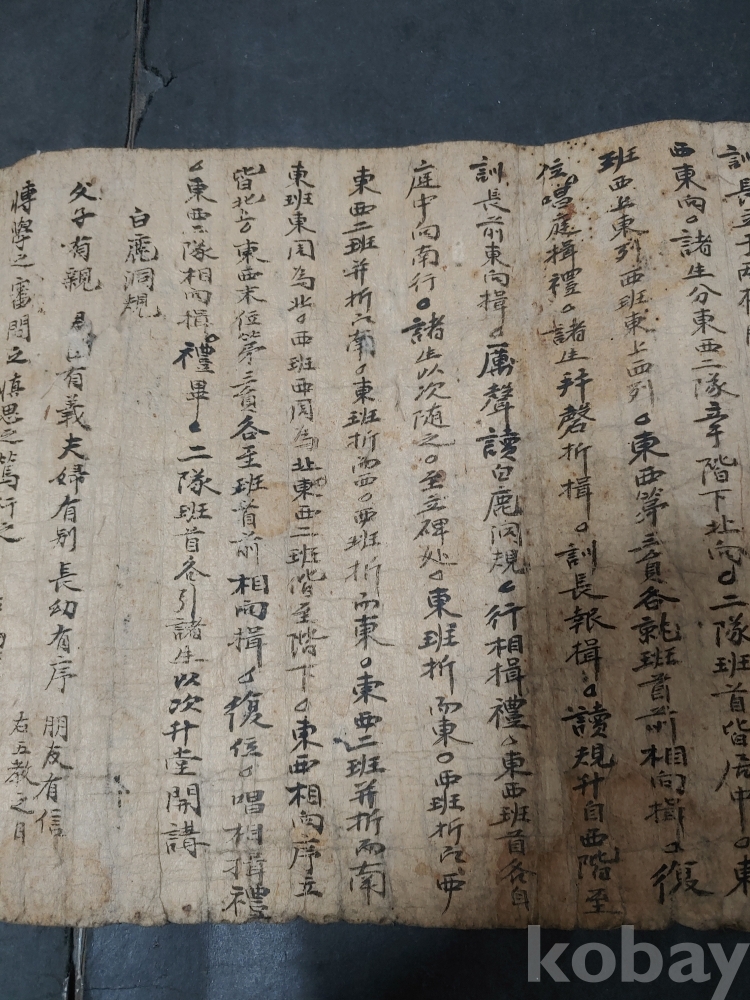 訓長立于西階
西東向○諸生分東西二隊立于階下北向○二隊班首皆居中○東
班西上東列西班東上西列○東西第三員各就班首前相向揖○復
位唱庭揖禮○諸生拜磬折揖○訓長報揖○讀規升自西階至
訓長前東向揖○厲聲讀白鹿洞規○行相揖禮○東西班首各自
庭中向南行○諸生以次随之○至立碑处○東班折而東○西班折而西
東西二班并折而南○東班折而西○西班折而東○東西二班并折而南
東班東周為北○西班西周為北東西二班皆至階下○東西相向序立
皆北上○東西末位第三員各至班首前相向揖○復位○唱相揖禮
○東西二隊相向揖○禮畢○二隊班首各引諸生以次升堂開講
白鹿洞規
父子有親 君臣有義 夫婦有別 長幼有序 朋友有信
右五教之目
博學之審問之慎思之篤行之
kobay